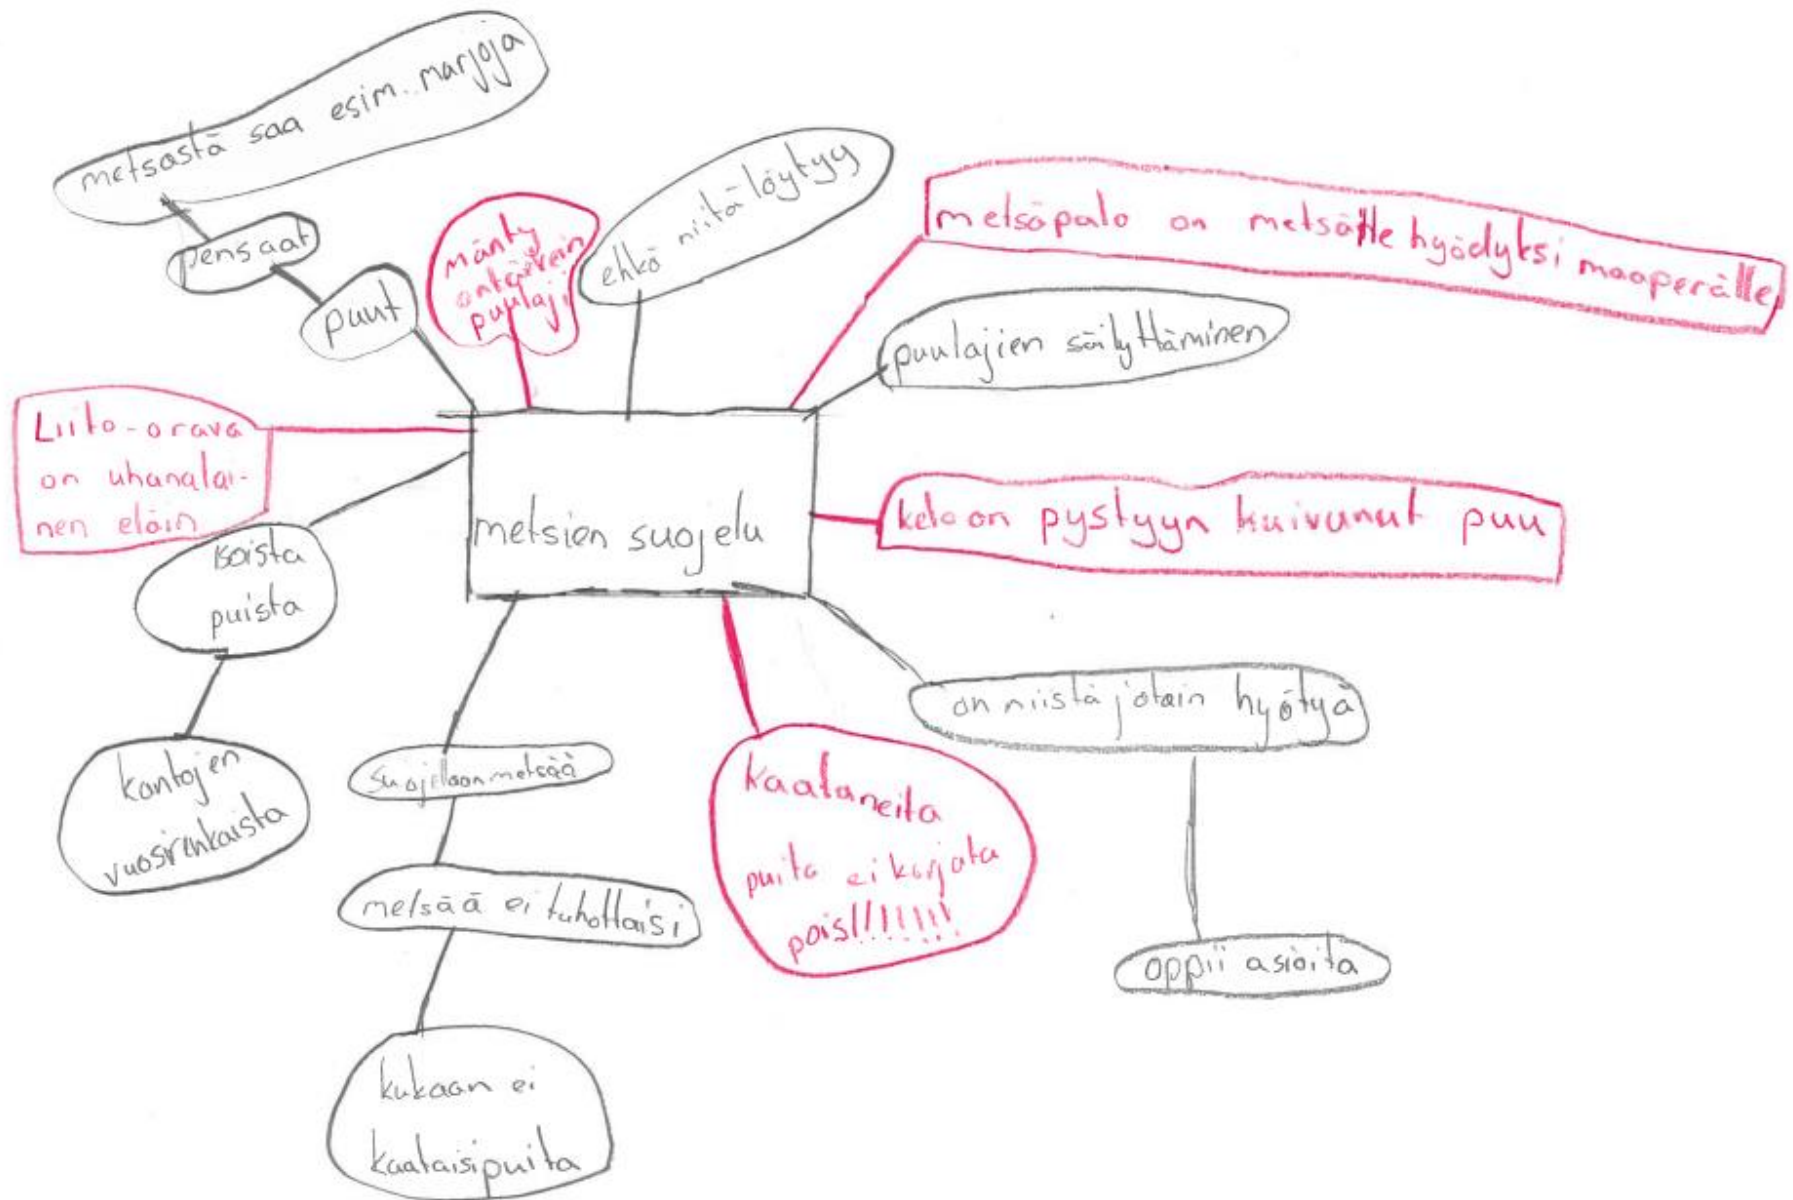 metsästä saa esim. marjoja
pensaat
puut
mänty
on tärkein
puulaji
ehkä niitä löytyy
metsäpalo on metsälle hyödyksi maaperälle
puulajien säilyttäminen
Liito-orava
on uhanalai-
nen eläin
metsien suojelu
kelo on pystyyn kuivunut puu
isoista
puista
kantojen
vuosirenkaista
suojellaan metsää
metsää ei tuhottaisi
kukaan ei
kaataisi puita
kaataneita
puita ei korjata
pois!!!!!!!
on niistä jotain hyötyä
oppii asioita